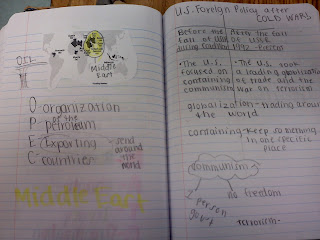 Middle
East
OIL
O-organization
of the
P-petroleum
E-Exporting - send
around
the
world
C-countries
Middle East
U.S. Foreign Policy after
COLD WAR
Before the After the fall
fall of USSR of USSR
1992-Present
The U.S. The U.S. took
focused on a leading
containing of trade and the
communism war on terrorism
globalization - trading around
the world
containing - keep something
in one specific
place
communism
1 person
gov't
no freedom
terrorism-